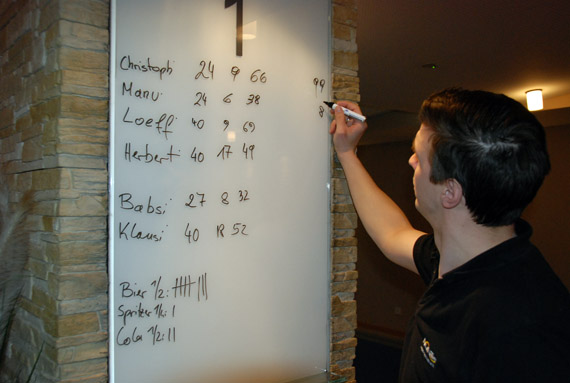 1
Christoph 24 9 66 99
Manu 24 6 38 8
Loeff 40 9 69
Herbert 40 17 49
Babsi 27 8 32
Klausi 40 18 52
Bier 1/2: |||| |||
Spritzer 1/2: |
Cola 1/2: ||